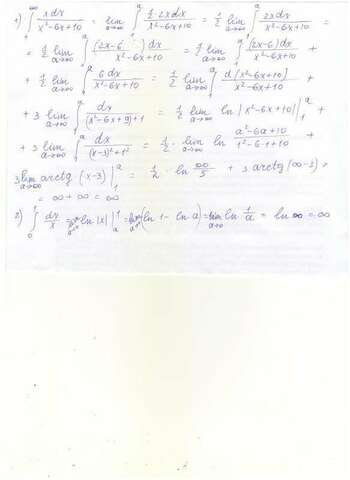 1) ∫₁^{+∞} xdx/(x²-6x+10) = lim_{a→∞} ∫₁^a (1/2·2xdx)/(x²-6x+10) = 1/2 lim_{a→∞} ∫₁^a 2xdx/(x²-6x+10) =
= 1/2 lim_{a→∞} ∫₁^a (2x-6 )dx/(x²-6x+10) = 1/2 lim_{a→∞} ∫₁^a (2x-6)dx/(x²-6x+10) +
+ 1/2 lim_{a→∞} ∫₁^a 6dx/(x²-6x+10) = 1/2 lim_{a→∞} ∫₁^a d(x²-6x+10)/(x²-6x+10) +
+ 3 lim_{a→∞} ∫₁^a dx/((x²-6x+9)+1) = 1/2 lim_{a→∞} ln|x²-6x+10||₁^a +
+ 3 lim_{a→∞} ∫₁^a dx/((x-3)²+1²) = 1/2· lim_{a→∞} ln (a²-6a+10)/(1²-6·1+10) +
3 lim_{a→∞} arctg(x-3)|₁^a = 1/2 · ln ∞/5 + 3 arctg(∞-3) =
= ∞ + ∞ = ∞
2) ∫₀¹ dx/x = lim ln|x||_a¹ = lim(ln 1 - ln a) = lim_{a→0} ln 1/a = ln ∞ = ∞